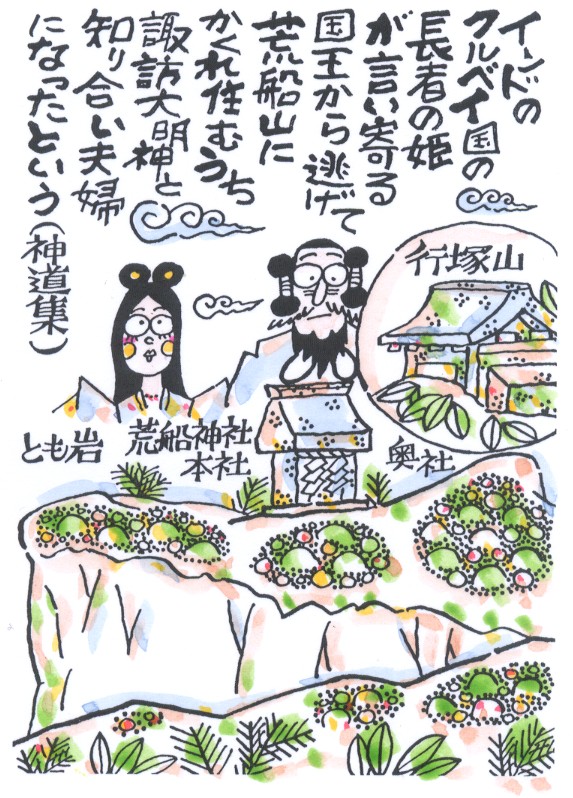 インドの
クルベイ国の
長者の姫
が言い寄る
国王から逃げて
荒船山に
かくれ住むうち
諏訪大明神と
知り合い夫婦
になったという(神道集)
行塚山
とも岩
荒船神社
本社
奥社